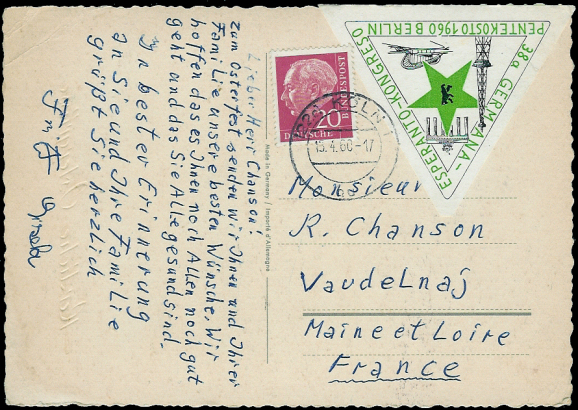 Lieber Herr Chanson!
zum Osterfest senden wir Ihnen und Ihrer
Familie unsere besten Wünsche. Wir
hoffen das es Ihnen noch Allen noch gut
geht und das Sie Alle gesund sind.
In bester Erinnerung
an Sie und Ihre Familie
grüßt Sie herzlich
Made in Germany / Importé d'Allemagne
20
DEUTSCHE
BUNDESPOST
KÖLN 1
15.4.60-17
38a GERMANA-
ESPERANTO-KONGRESO
PENTEKOSTO 1960 BERLIN
Monsieur
R. Chanson
Vaudelnaj
Maine et Loire
France